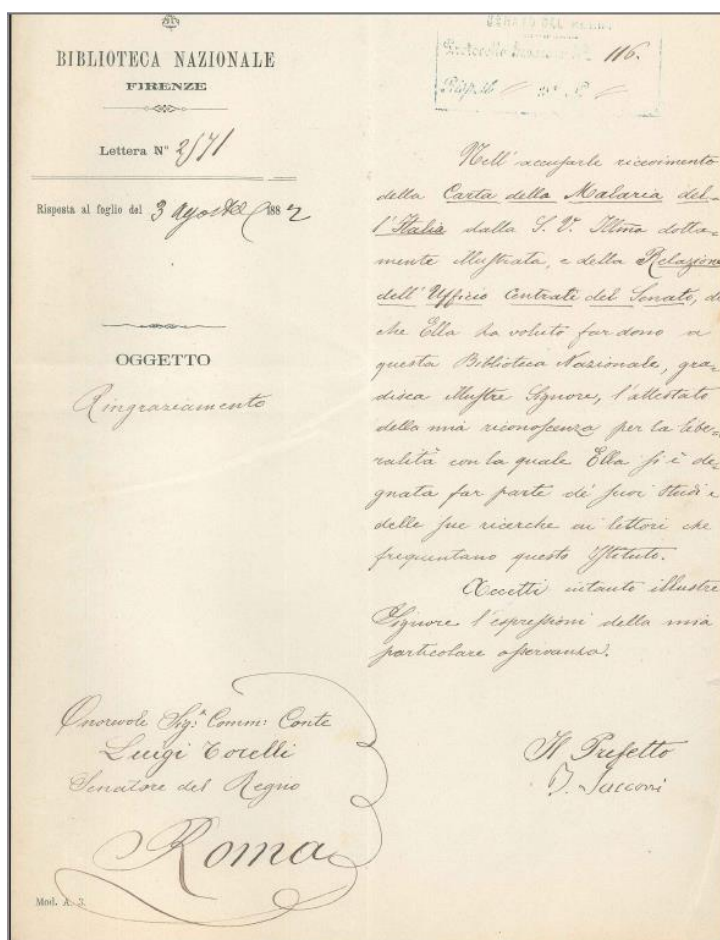 BIBLIOTECA NAZIONALE
FIRENZE
Lettera N° 2571
Risposta al foglio del 3 Agosto 1882
OGGETTO
Ringraziamento
Onorevole Sig.r Comm: Conte
Luigi Torelli
Senatore del Regno
Roma
Mod. A. 3.
SENATO DEL REGNO
116.
Nell' accusarle ricevimento
della Carta della Malaria del-
l'Italia dalla S. V. Illma dotta-
mente illustrata, e della Relazione
dell' Ufficio Centrale del Senato, di
che Ella ha voluto far dono a
questa Biblioteca Nazionale, gra-
disca illustre Signore, l'attestato
della mia riconoscenza per la libe-
ralità con la quale Ella si è de-
gnata far parte de' suoi studi e
delle sue ricerche ai lettori che
frequentano questo Istituto.
Accetti intanto illustre
Signore l'espressioni della mia
particolare osservanza.
Il Prefetto